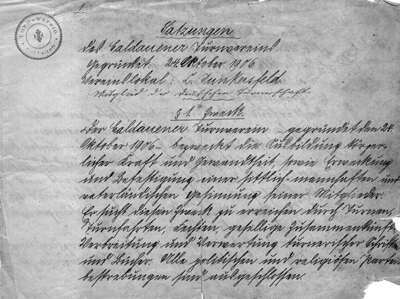 Satzungen
des Caldauener Turnvereins
Gegründet 24. Oktober 1906
Vereinslokal: L. Junkersfeld.
Mitglied der deutschen Turnerschaft.
§ 1. Zweck.
Der Caldauener Turnverein gegründet den 24.
Oktober 1906 bezweckt die Ausbildung körper-
licher Kraft und Gewandtheit, sowie Erweckung
und Befestigung einer sittlich-mannhaften und
vaterländischen Gesinnung seiner Mitglieder.
Er sucht diesen Zweck zu erreichen durch Turnen,
Turnfahrten, gesellige Zusammenkünfte,
Verbreitung und Verwertung turnerischer Schriften
und Bücher. Alle politischen und religiösen Partei-
bestrebungen sind ausgeschlossen.